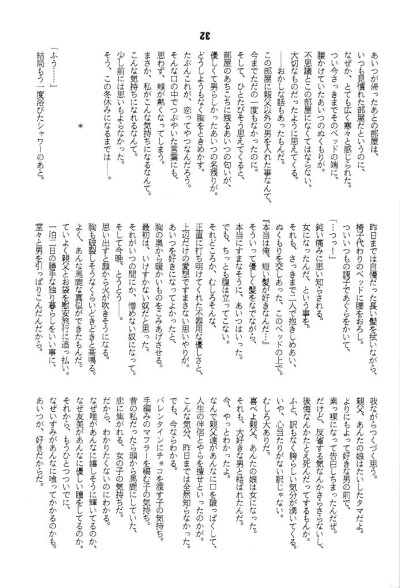 32
あいつが帰ったあとの部屋は、
いつも見慣れた部屋だというのに、
なぜか、とても広く寒々と感じられた。
ついさっきまでそのベッドの端に、
腰かけていたあいつのぬくもりが、
不思議とこの部屋になくてはならない、
大切なもののだったように思えてくる。
――おかしな話もあったもんだ。
この部屋に親父以外の男を入れた事なんて、
今までただの一度もなかったのに。
そして、ひとたびそう思えてくると、
部屋のあちこちに残るあいつの匂いが、
優しくて男らしかったあいつの名残りが、
どうしようもなく胸をときめかす。
たぶんこれが、恋ってやつなんだろう。
そんな口の中でつぶやいた言葉にも、
思わず、頬が熱くなってしまう。
まさか、私がこんな気持ちになるなんて。
こんな気持ちになれるなんて、
少し前には思いもよらなかった。
そう、この冬休みになるまでは――。
*
「ふう……」
結局もう一度浴びたシャワーのあと。
昨日までは自慢だった長い髪を拭いながら、
椅子代わりのベッドに腰をおろし。
ついいつもの調子であぐらをかくと、
「……つっ――」
鈍い痛みに思い知らされる。
女になったんだ、という事を。
それも、さっきまで二人で抱きしめあい、
ぬくもりを交わした、このベッドの上で。
『本当は俺、短い髪が好きなんだ』
そういって優しく髪をなでながら、
本当にすまなそうに、あいつはいった。
でも、ちっとも腹は立ってこない。
それどころか、むしろそんな、
正直に打ち明けてくれた不器用な優しさと、
上辺だけの愛想ですまさない思いやりが、
あいつを好きになってよかったと、
胸の奥から暖かいものをこみあげさせる。
最初は、いけすかない奴だと思った。
それがいつの間にか、憎めない奴になって。
そして今晩、とうとう――。
思い出すと顔から火が吹きそうになる。
胸も破裂しそうなくらいどきどきと高鳴る。
よく、あんな馬鹿な真似ができたもんだ。
ていよく親父とお袋を慰安旅行に追っ払い。
一泊二日の勝手な独り暮らしをいい事に、
堂々と男を引っぱりこんだんだから。
我ながらつくづく思う。
親父、あんたの娘はたいしたタマだよ。
よりにもよって好きな男の前で、
素っ裸になって告白しちまったんだぜ。
だけど、反省する気なんかさらさらないし、
後悔なんかたとえ死んだってするもんか。
ふと、訳もなく誇らしい気分が湧いてくる。
いや、心当たりがない訳じゃない。
むしろ大ありだ。
喜べよ親父、あんたの娘は女になった。
それも、大好きな男と結ばれたんだ。
今、やっとわかったよ。
なんで親父達があんなに口を酸っぱくして、
人生の伴侶とやらを捜せといったのか。
こんな気分、昨日までは全然知らなかった。
でも、今ならわかる。
バレンタインにチョコを渡す子の気持ち。
手編みのマフラーを編む子の気持ち。
昔の私だったら頭から馬鹿にしていた、
恋に焦がれる、女の子の気持ちが。
だから、わかりたくないのにわかっちまう。
なぜ唯があんなに嬉しそうに輝いてるのか。
なぜ友美があんなに優しい瞳をしてるのか。
それから、もうひとつついでに、
なぜいずみがあんなに喰ってかかるのかも。
あいつが、好きだからだ。